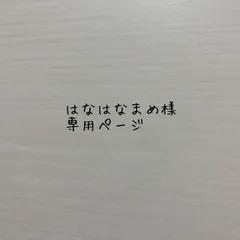 はなはなまめ様
専用ページ